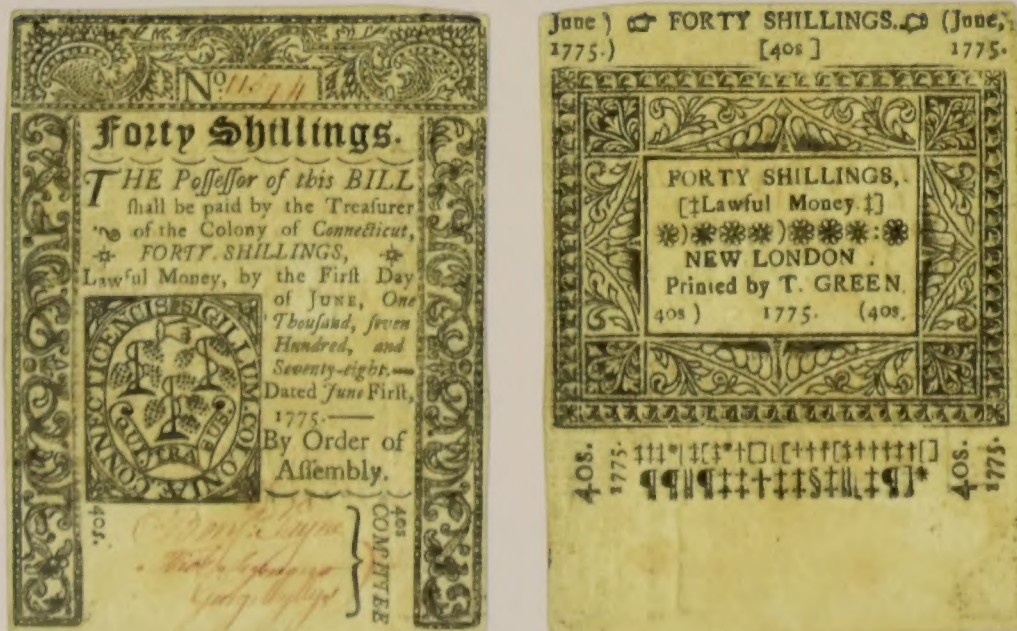 No.
Forty Shillings.
THE Poſſeſſor of this BILL
ſhall be paid by the Treaſurer
of the Colony of Connecticut,
FORTY SHILLINGS,
Lawful Money, by the Firſt Day
of JUNE, One
Thouſand, ſeven
Hundred, and
Seventy-eight.—
Dated June Firſt,
1775.—
By Order of
Aſſembly.
SIGILLUM. COLONIÆ CONNECTICENCIS
40s.
40s
COMITEE
June ) ☞ FORTY SHILLINGS. ☜ (June,
1775.) [40s ] 1775.
FORTY SHILLINGS,
[‡Lawful Money.‡]
NEW LONDON .
Printed by T. GREEN.
40s ) 1775. (40s.
40s.
1775.
40s.
1775.